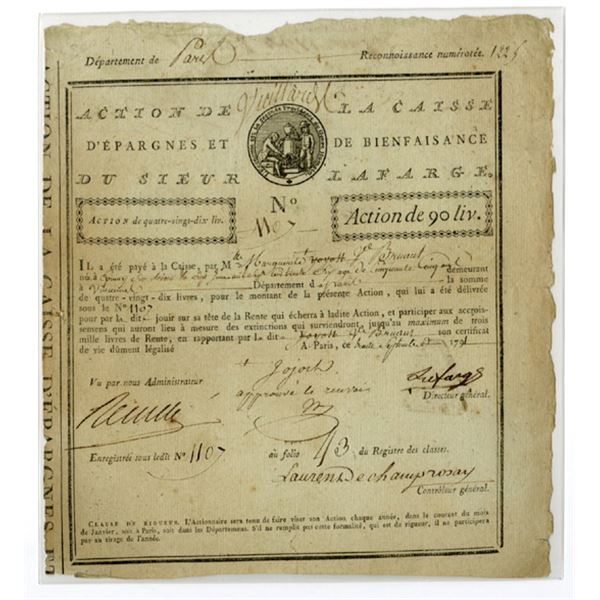 Département de Paris Reconnoissance numérotée. 1225
Vieillards
ACTION DE LA CAISSE
D'ÉPARGNES ET DE BIENFAISANCE
DU SIEUR LAFARGE.
No
1107
ACTION de quatre-vingt-dix liv. Action de 90 liv.
IL a été payé à la Caisse, par M Marguerite
née à demeurant
à Département d la somme
de quatre-vingt-dix livres, pour le montant de la présente Action, qui lui a été délivrée
sous le No 1107
pour par la dite jouir sur sa tête de la Rente qui écherra à ladite Action, et participer aux accrois-
semens qui auront lieu à mesure des extinctions qui surviendront jusqu'au maximum de trois
mille livres de Rente, en rapportant par la dite son certificat
de vie dûment légalisé A Paris, ce trente Septembre 1791
Vu par nous Administrateur
approuvé le renvoi
Lafarge
Directeur général.
Enregistrée sous ledit No 1107 au folio 43 du Registre des classes.
Laurent De champrosay
Contrôleur général.
CLAUSE DE RIGUEUR. L'Actionnaire sera tenu de faire viser son Action chaque année, dans le courant du mois
de Janvier, soit à Paris, soit dans les Départemens. S'il ne remplit pas cette formalité, qui est de rigueur, il ne participera
pas au tirage de l'année.
ACTION DE LA CAISSE D'ÉPARGNES ET